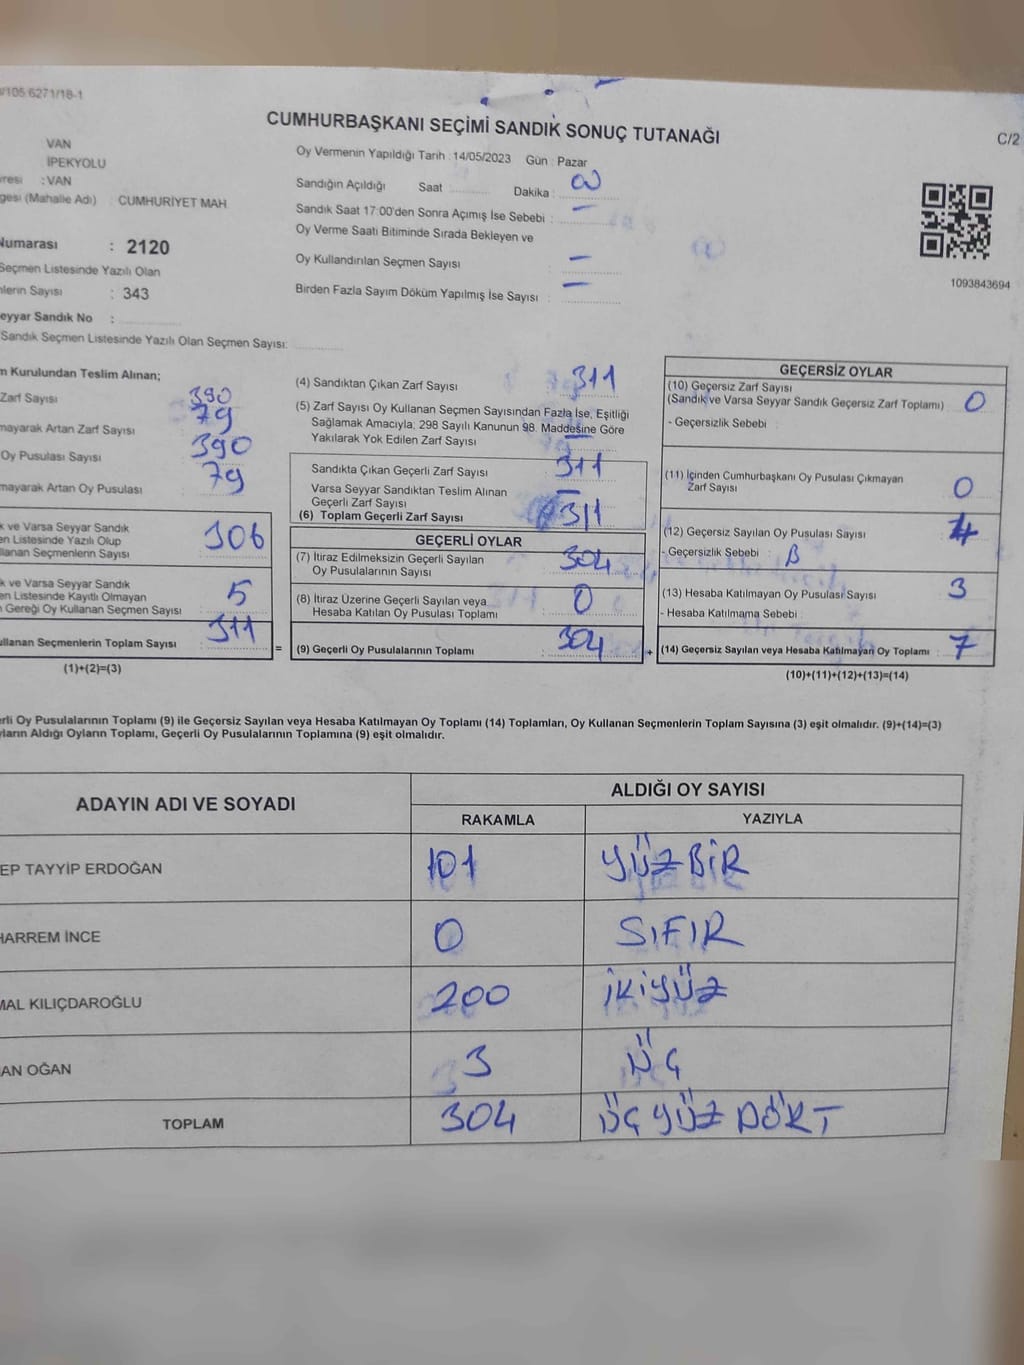 /105 6271/18-1
CUMHURBAŞKANI SEÇİMİ SANDIK SONUÇ TUTANAĞI
C/2
VAN
İPEKYOLU
: VAN
gesi (Mahalle Adı) : CUMHURİYET MAH
Numarası : 2120
Seçmen Listesinde Yazılı Olan
lerin Sayısı : 343
eyyar Sandık No :
Sandık Seçmen Listesinde Yazılı Olan Seçmen Sayısı:
Oy Vermenin Yapıldığı Tarih : 14/05/2023 Gün : Pazar
Sandığın Açıldığı Saat Dakika :
Sandık Saat 17:00'den Sonra Açımış İse Sebebi : –
Oy Verme Saati Bitiminde Sırada Bekleyen ve
Oy Kullandırılan Seçmen Sayısı : –
Birden Fazla Sayım Döküm Yapılmış İse Sayısı : –
1093843694
m Kurulundan Teslim Alınan;
Zarf Sayısı 390
mayarak Artan Zarf Sayısı 79
Oy Pusulası Sayısı 390
mayarak Artan Oy Pusulası 79
k ve Varsa Seyyar Sandık
en Listesinde Yazılı Olup
llanan Seçmenlerin Sayısı 306
k ve Varsa Seyyar Sandık
en Listesinde Kayıtlı Olmayan
n Gereği Oy Kullanan Seçmen Sayısı 5
ullanan Seçmenlerin Toplam Sayısı : 311 =
(1)+(2)=(3)
(4) Sandıktan Çıkan Zarf Sayısı 311
(5) Zarf Sayısı Oy Kullanan Seçmen Sayısından Fazla İse, Eşitliği
Sağlamak Amacıyla; 298 Sayılı Kanunun 98. Maddesine Göre
Yakılarak Yok Edilen Zarf Sayısı –
Sandıkta Çıkan Geçerli Zarf Sayısı 311
Varsa Seyyar Sandıktan Teslim Alınan
Geçerli Zarf Sayısı –
(6) Toplam Geçerli Zarf Sayısı 311
GEÇERLİ OYLAR
(7) İtiraz Edilmeksizin Geçerli Sayılan
Oy Pusulalarının Sayısı 304
(8) İtiraz Üzerine Geçerli Sayılan veya
Hesaba Katılan Oy Pusulası Toplamı : 0
(9) Geçerli Oy Pusulalarının Toplamı : 304 +
GEÇERSİZ OYLAR
(10) Geçersiz Zarf Sayısı
(Sandık ve Varsa Seyyar Sandık Geçersiz Zarf Toplamı) : 0
- Geçersizlik Sebebi :
(11) İçinden Cumhurbaşkanı Oy Pusulası Çıkmayan
Zarf Sayısı 0
(12) Geçersiz Sayılan Oy Pusulası Sayısı : 4
- Geçersizlik Sebebi : B
(13) Hesaba Katılmayan Oy Pusulası Sayısı : 3
- Hesaba Katılmama Sebebi :
(14) Geçersiz Sayılan veya Hesaba Katılmayan Oy Toplamı : 7
(10)+(11)+(12)+(13)=(14)
erli Oy Pusulalarının Toplamı (9) ile Geçersiz Sayılan veya Hesaba Katılmayan Oy Toplamı (14) Toplamları, Oy Kullanan Seçmenlerin Toplam Sayısına (3) eşit olmalıdır. (9)+(14)=(3)
yların Aldığı Oyların Toplamı, Geçerli Oy Pusulalarının Toplamına (9) eşit olmalıdır.
ADAYIN ADI VE SOYADI
ALDIĞI OY SAYISI
RAKAMLA YAZIYLA
EP TAYYİP ERDOĞAN 101 YÜZBİR
HARREM İNCE 0 SIFIR
MAL KILIÇDAROĞLU 200 İKİYÜZ
AN OĞAN 3 ÜÇ
TOPLAM 304 ÜÇ YÜZ DÖRT